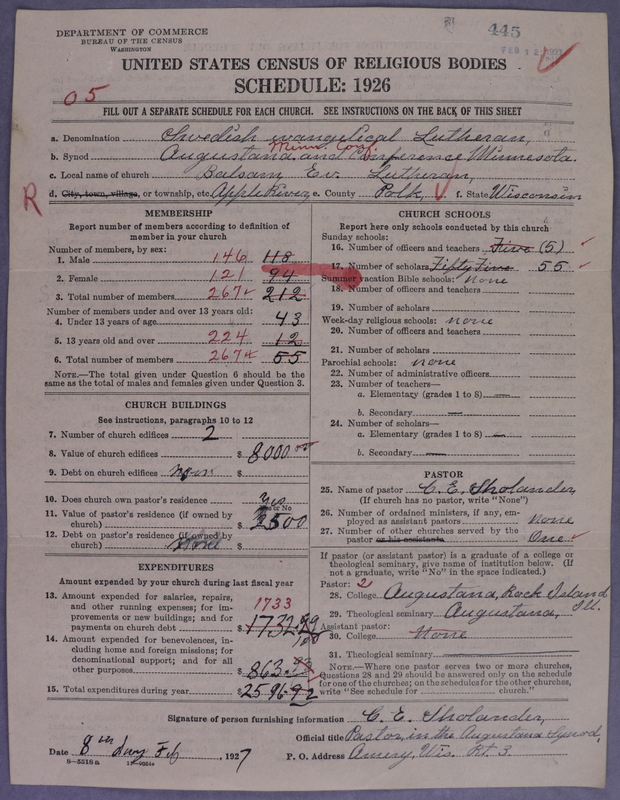 DEPARTMENT OF COMMERCE
BUREAU OF THE CENSUS
WASHINGTON
445
FEB 12 1927
UNITED STATES CENSUS OF RELIGIOUS BODIES
SCHEDULE: 1926
05
FILL OUT A SEPARATE SCHEDULE FOR EACH CHURCH. SEE INSTRUCTIONS ON THE BACK OF THIS SHEET
a. Denomination Swedish evangelical Lutheran,
Minn Conf.
b. Synod Augustana, and Conference Minnesota.
c. Local name of church Balsam Ev. Lutheran,
R
d. City, town, village, or township, etc. Apple River e. County Polk, f. State Wisconsin
MEMBERSHIP
Report number of members according to definition of
member in your church
Number of members, by sex:
1. Male 146 118
2. Female 121 94
3. Total number of members 267 212
Number of members under and over 13 years old:
4. Under 13 years of age 43
5. 13 years old and over 224 12
6. Total number of members 267 55
NOTE.—The total given under Question 6 should be
same as the total of males and females given under Question 3.
CHURCH BUILDINGS
See instructions, paragraphs 10 to 12
7. Number of church edifices 2
8. Value of church edifices $ 8000.00
9. Debt on church edifices none $
10. Does church own pastor's residence Yes
Yes or No
11. Value of pastor's residence (if owned by
church) $ 2500
12. Debt on pastor's residence (if owned by
church) None $
EXPENDITURES
Amount expended by your church during last fiscal year
13. Amount expended for salaries, repairs,
and other running expenses; for im-
provements or new buildings; and for
payments on church debt 1733 $ 1732.99
14. Amount expended for benevolences, in-
cluding home and foreign missions; for
denominational support; and for all
other purposes $ 863.93
15. Total expenditures during year $ 2596.92
CHURCH SCHOOLS
Report here only schools conducted by this church
Sunday schools:
16. Number of officers and teachers Five (5)
17. Number of scholars Fifty Five 55
Summer vacation Bible schools: None
18. Number of officers and teachers
19. Number of scholars
Week-day religious schools: none
20. Number of officers and teachers
21. Number of scholars
Parochial schools: none
22. Number of administrative officers
23. Number of teachers—
a. Elementary (grades 1 to 8)
b. Secondary
24. Number of scholars—
a. Elementary (grades 1 to 8)
b. Secondary
PASTOR
25. Name of pastor C. E. Sholander,
(If church has no pastor, write "None")
26. Number of ordained ministers, if any, em-
ployed as assistant pastors None
27. Number of other churches served by the
pastor or his assistants One
If pastor (or assistant pastor) is a graduate of a college or
theological seminary, give name of institution below. (If
not a graduate, write "No" in the space indicated.)
Pastor: 2
28. College Augustana, Rock Island
Ill.
29. Theological seminary Augustana,
Assistant pastor:
30. College None
31. Theological seminary
NOTE.—Where one pastor serves two or more churches,
Questions 28 and 29 should be answered only on the schedule
for one of the churches; on the schedules for the other churches,
write "See schedule for church."
Signature of person furnishing information C. E. Sholander,
Official title Pastor, in the Augustana Synod,
Date 8th day Feb, 1927 P. O. Address Amery, Wis. Rt. 3.
8—5518a